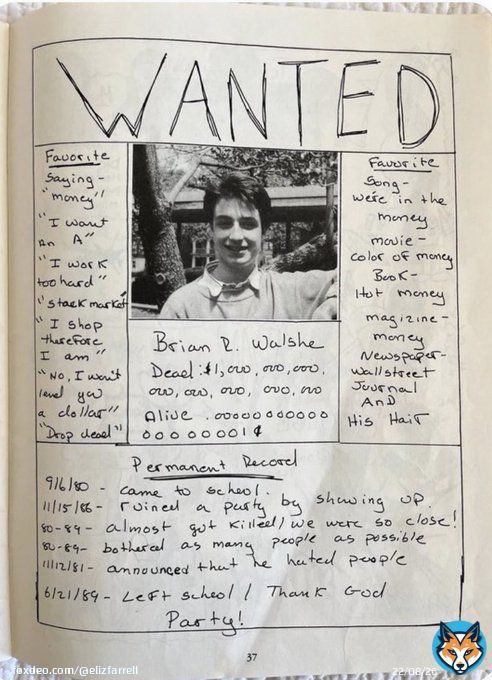 WANTED
Favorite
Saying -
"money"
"I want
an A"
"I work
too hard"
"stock market"
"I shop
therefore
I am"
"No, I won't
lend you
a dollar"
"Drop dead"
Brian R. Walshe
Dead: $1,000,000,000,
000,000,000,000,000
Alive .00000000000
00000001¢
Favorite
Song -
we're in the
money
movie -
color of money
Book -
Hot money
magizine -
money
Newspaper -
Wallstreet
Journal
AND
His Hair
Permanent Record
9/6/80 - came to school.
11/15/86 - ruined a party by showing up.
80-89 - almost got killed / we were so close!
80-89 - bothered as many people as possible
11/12/81 - announced that he hated people
6/21/89 - Left school / Thank God
Party!
37
foxdeo.com/@elizfarrell